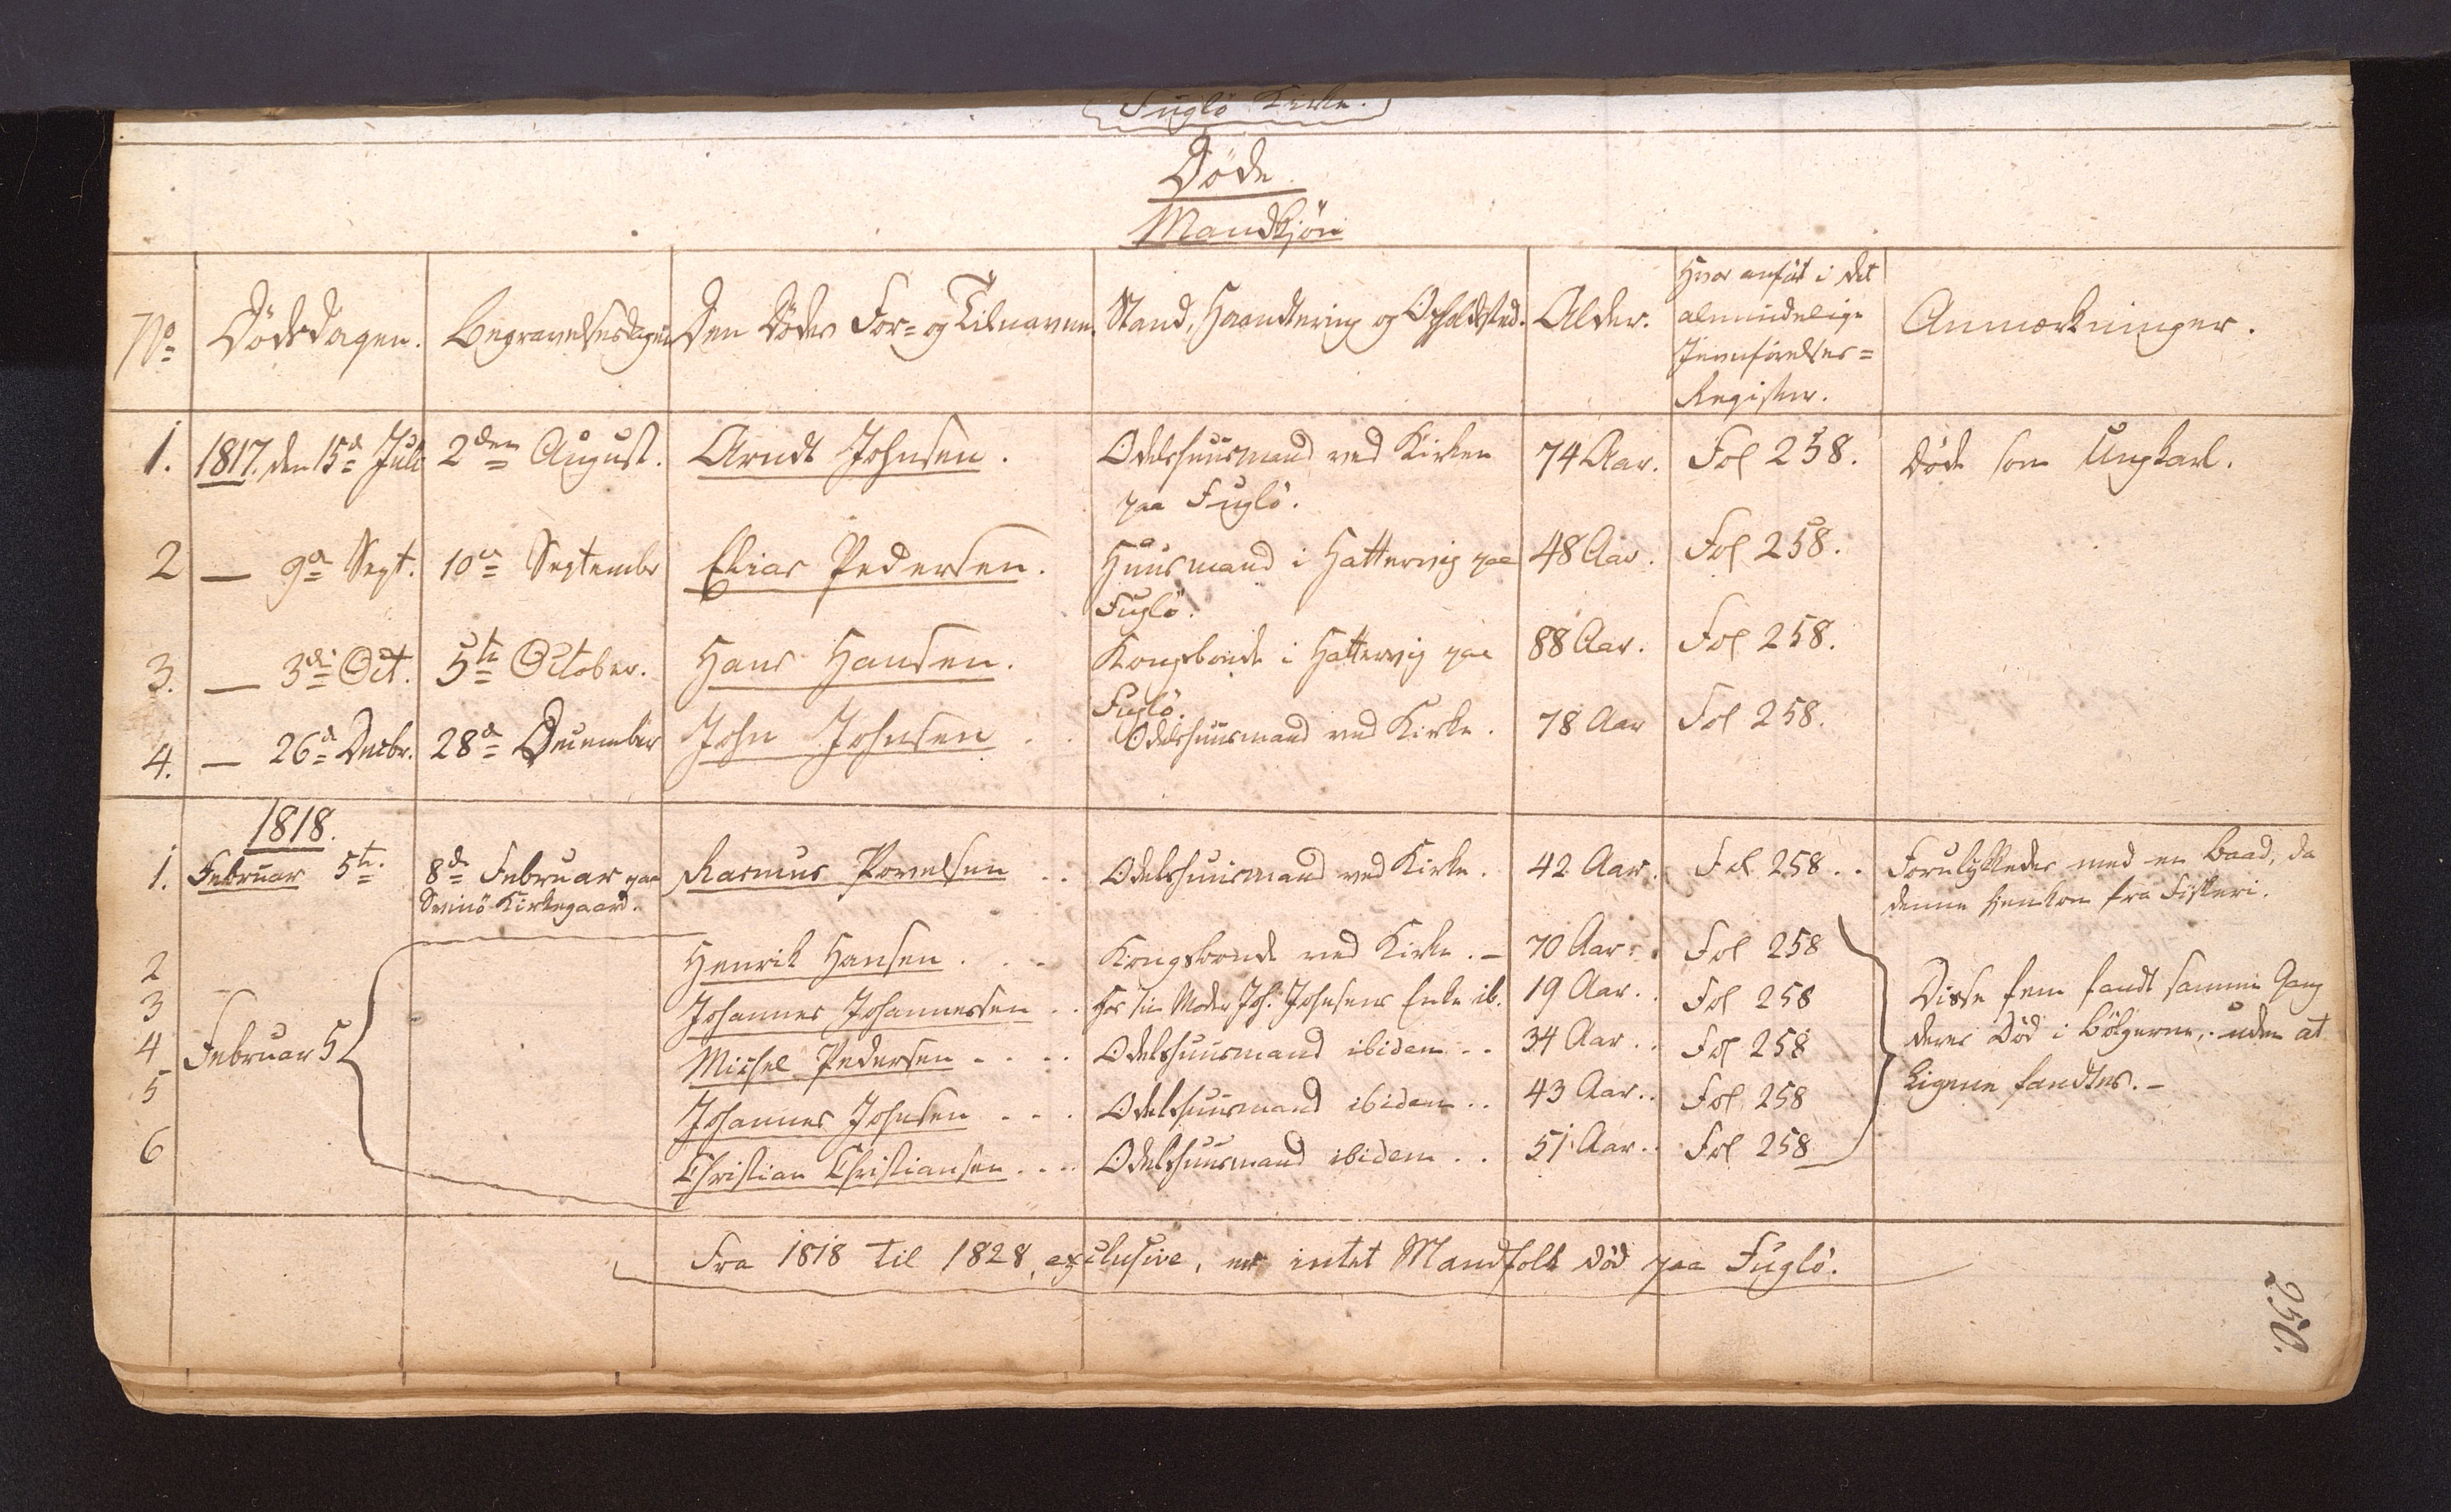 Fuglö Kirke.
Döde
Mandkjön
No Dödsdagen. Begravelsesdagen Den Dödes For- og Tilnavne. Stand, Haandtering og Opholdsted. Alder. Hvor anfört i det almindelige Jevnförelses= Register. Anmærkninger.
1. 1817. den 15d Juli 2den August. Arndt Johnsen. Odelshuusmand ved Kirken 74 Aar. Fol 258. Döde som Ungkarl.
paa Fuglö.
2 — 9d Sept. 10d Septembr Elias Pedersen. Huusmand i Hattervig paa 48 Aar. Fol 258.
Fuglö.
3. — 3di Oct. 5te October. Hans Hansen. Kongsbonde i Hattervig paa 88 Aar. Fol 258.
Fuglö.
4. — 26d Decbr. 28d December John Johnsen Odelshuusmand ved Kirke. 78 Aar Fol 258.
1818.
1. Februar 5te 8de Februar paa Rasmus Povelsen .. Odelshuusmand ved Kirke. 42 Aar. Fol 258.. Forulykkedes med en Baad, da
Svinö Kirkegaard. denne henkom fra Fiskeri.
2 Henrik Hansen . . - Kongsbonde ved Kirke. - 70 Aar. Fol 258
3 Johannes Johannessen .. Hos sin Moder Joh. Johnsens Enke ib. 19 Aar.. Fol 258 Disse fem fandt samme Gang
4 Februar 5 Michel Pedersen - . . . Odelshuusmand ibidem .. 34 Aar.. Fol 258 deres Död i Bölgerne, uden at
5 Johannes Johnsen - - . Odelshuusmand ibidem .. 43 Aar.. Fol 258 Ligene fandtes. -
6 Christian Christiansen . . . . Odelshuusmand ibidem .. 51 Aar.. Fol 258
Fra 1818 til 1828, exclusive, er intet Mandfolk död paa Fuglö.
250.